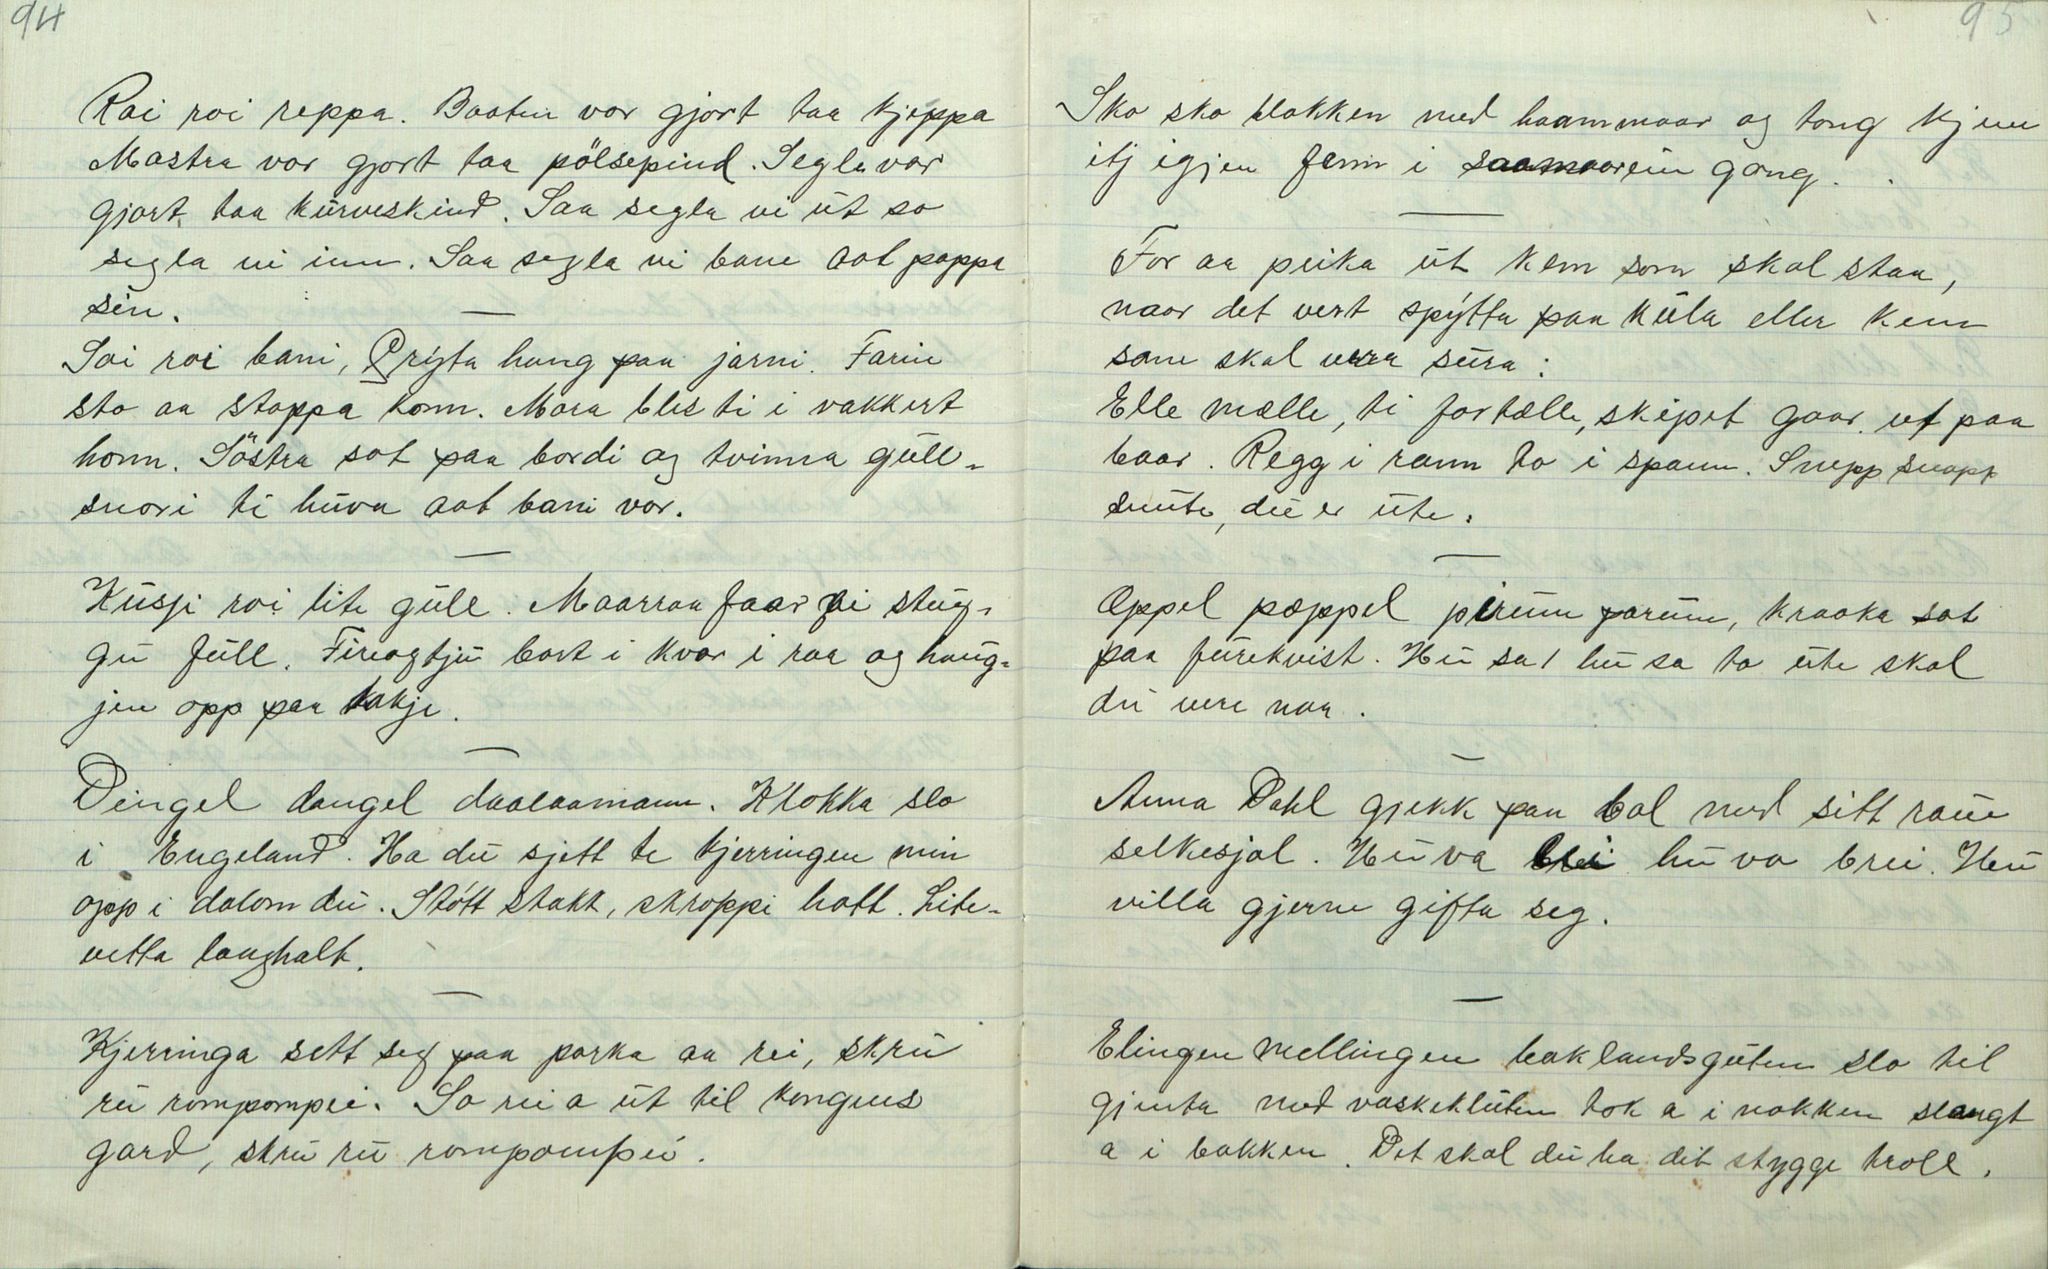 94
Roi roi reppa. Baaten vor gjort taa kjeppa
Mastra vor gjort taa pölsepind. Segle vor
gjort taa kurveskind. Saa segla vi ut so
segla vi inn. Saa segla vi bane aat pappa
sin.
Soi roi bani, Gryta hang paa jarni. Farin
sto aa stappa konn. Mora bles ti i vakkert
honn. Söstra sat paa bordi og tvinna gull-
snori ti huva aat bani vor.
Kussji roi lite gull. Maarraa faar vi stug-
gu full. Fireogtju bort i kvar i raa og haug-
jen opp paa takje.
Dingel dangel daalaamann. Klokka slo
i Engeland. Ha du sjett te kjerringen min
opp i dalom du. Stött stakk, skroppi hatt. Lite-
vetta langhalt.
Kjerringa sett seg paa porka aa rei, skru
ru rompompei. So rei a ut til kongens
gard, skru ru rompompei.
95
Sko sko blakken med haammaar og tong kjem
itj igjen fenn i saamaarein gong.
For aa peika ut kem som skal staa,
naar det vert spýtta paa kula eller kem
som skal vera sura:
Elle melle, ti fortælle, skipet gaar ut paa
baar. Regg i rann to i spann. Snipp snapp
snute, du er ute.
Oppel poppel pirum parum, kraaka sat
paa furekvist. Hu sa 1 hu sa to ute skal
du vere naa.
Anna Dahl gjekk paa bal med sitt raue
selkesjal. Hu va brei hu va brei. Hu
villa gjerne gifta seg.
Elingen mellingen baklandsguten slo til
gjenta med vaskekluten tok a i nakken slængt
a i bakken. Det skal du ha dit stygge troll.